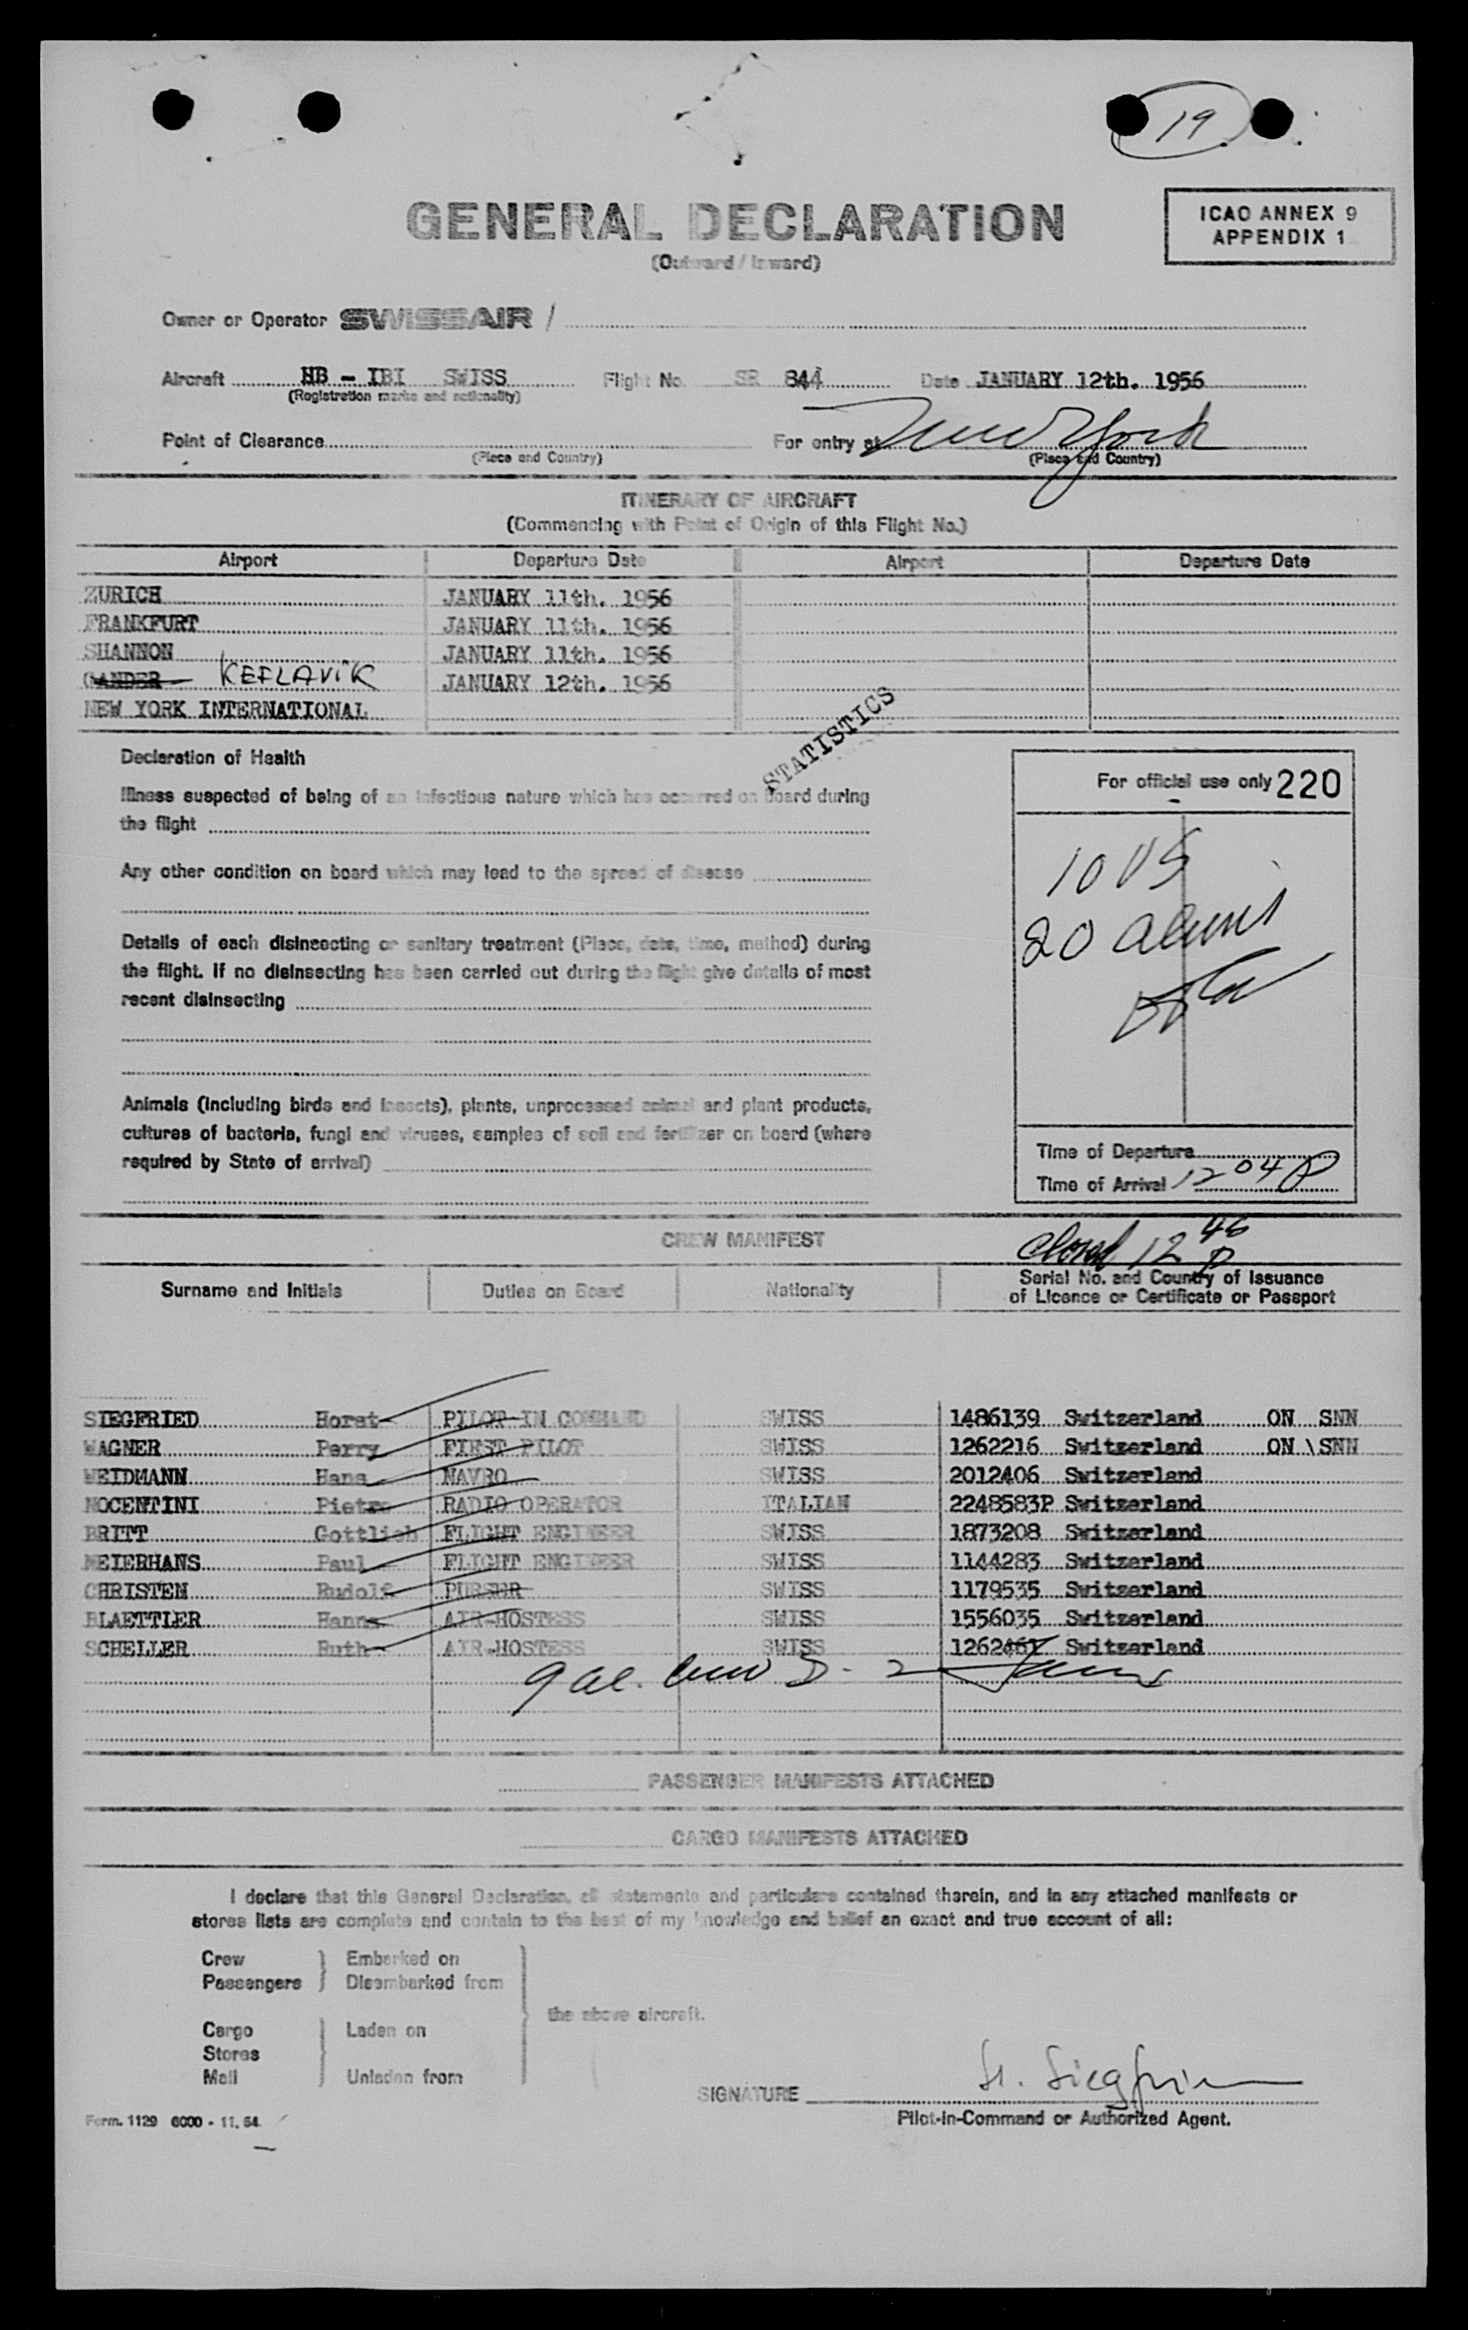 19
GENERAL DECLARATION
(Outward / Inward)
ICAO ANNEX 9
APPENDIX 1
Owner or Operator SWISSAIR /
Aircraft HB - IBI SWISS Flight No. SR 844 Date JANUARY 12th. 1956
(Registration marks and nationality)
Point of Clearance For entry at New York
(Place and Country) (Place and Country)
ITINERARY OF AIRCRAFT
(Commencing with Point of Origin of this Flight No.)
Airport Departure Date Airport Departure Date
ZURICH JANUARY 11th. 1956
FRANKFURT JANUARY 11th. 1956
SHANNON JANUARY 11th. 1956
GANDER KEFLAVIK JANUARY 12th. 1956
NEW YORK INTERNATIONAL
STATISTICS
Declaration of Health
Illness suspected of being of an infectious nature which has occurred on board during
the flight
Any other condition on board which may lead to the spread of disease
Details of each disinsecting or sanitary treatment (Place, date, time, method) during
the flight. If no disinsecting has been carried out during the flight give details of most
recent disinsecting
Animals (including birds and insects), plants, unprocessed animal and plant products,
cultures of bacteria, fungi and viruses, samples of soil and fertilizer on board (where
required by State of arrival)
For official use only 220
10 US
20 aliens
Time of Departure
Time of Arrival 12 04 P
CREW MANIFEST
Closed 12 46 P
Surname and Initials Duties on Board Nationality Serial No. and Country of Issuance
of Licence or Certificate or Passport
SIEGFRIED Horst PILOT IN COMMAND SWISS 1486139 Switzerland ON SNN
WAGNER Perry FIRST PILOT SWISS 1262216 Switzerland ON \ SNN
WEIDMANN Hans NAVRO SWISS 2012406 Switzerland
NOCENTINI Pietro RADIO OPERATOR ITALIAN 2248583P Switzerland
BRITT Gottlieb FLIGHT ENGINEER SWISS 1873208 Switzerland
MEIERHANS Paul FLIGHT ENGINEER SWISS 1144283 Switzerland
CHRISTEN Rudolf PURSER SWISS 1179535 Switzerland
BLAETTIER Hanna AIR-HOSTESS SWISS 1556035 Switzerland
SCHELLER Ruth AIR-HOSTESS SWISS Switzerland
9 al. crew
PASSENGER MANIFESTS ATTACHED
CARGO MANIFESTS ATTACHED
I declare that this General Declaration, all statements and particulars contained therein, and in any attached manifests or
stores lists are complete and contain to the best of my knowledge and belief an exact and true account of all:
Crew Embarked on
Passengers Disembarked from
the above aircraft.
Cargo Laden on
Stores
Mail Unladen from
SIGNATURE H. Siegfried
Pilot-in-Command or Authorized Agent.
Form. 1129 6000 - 11. 54